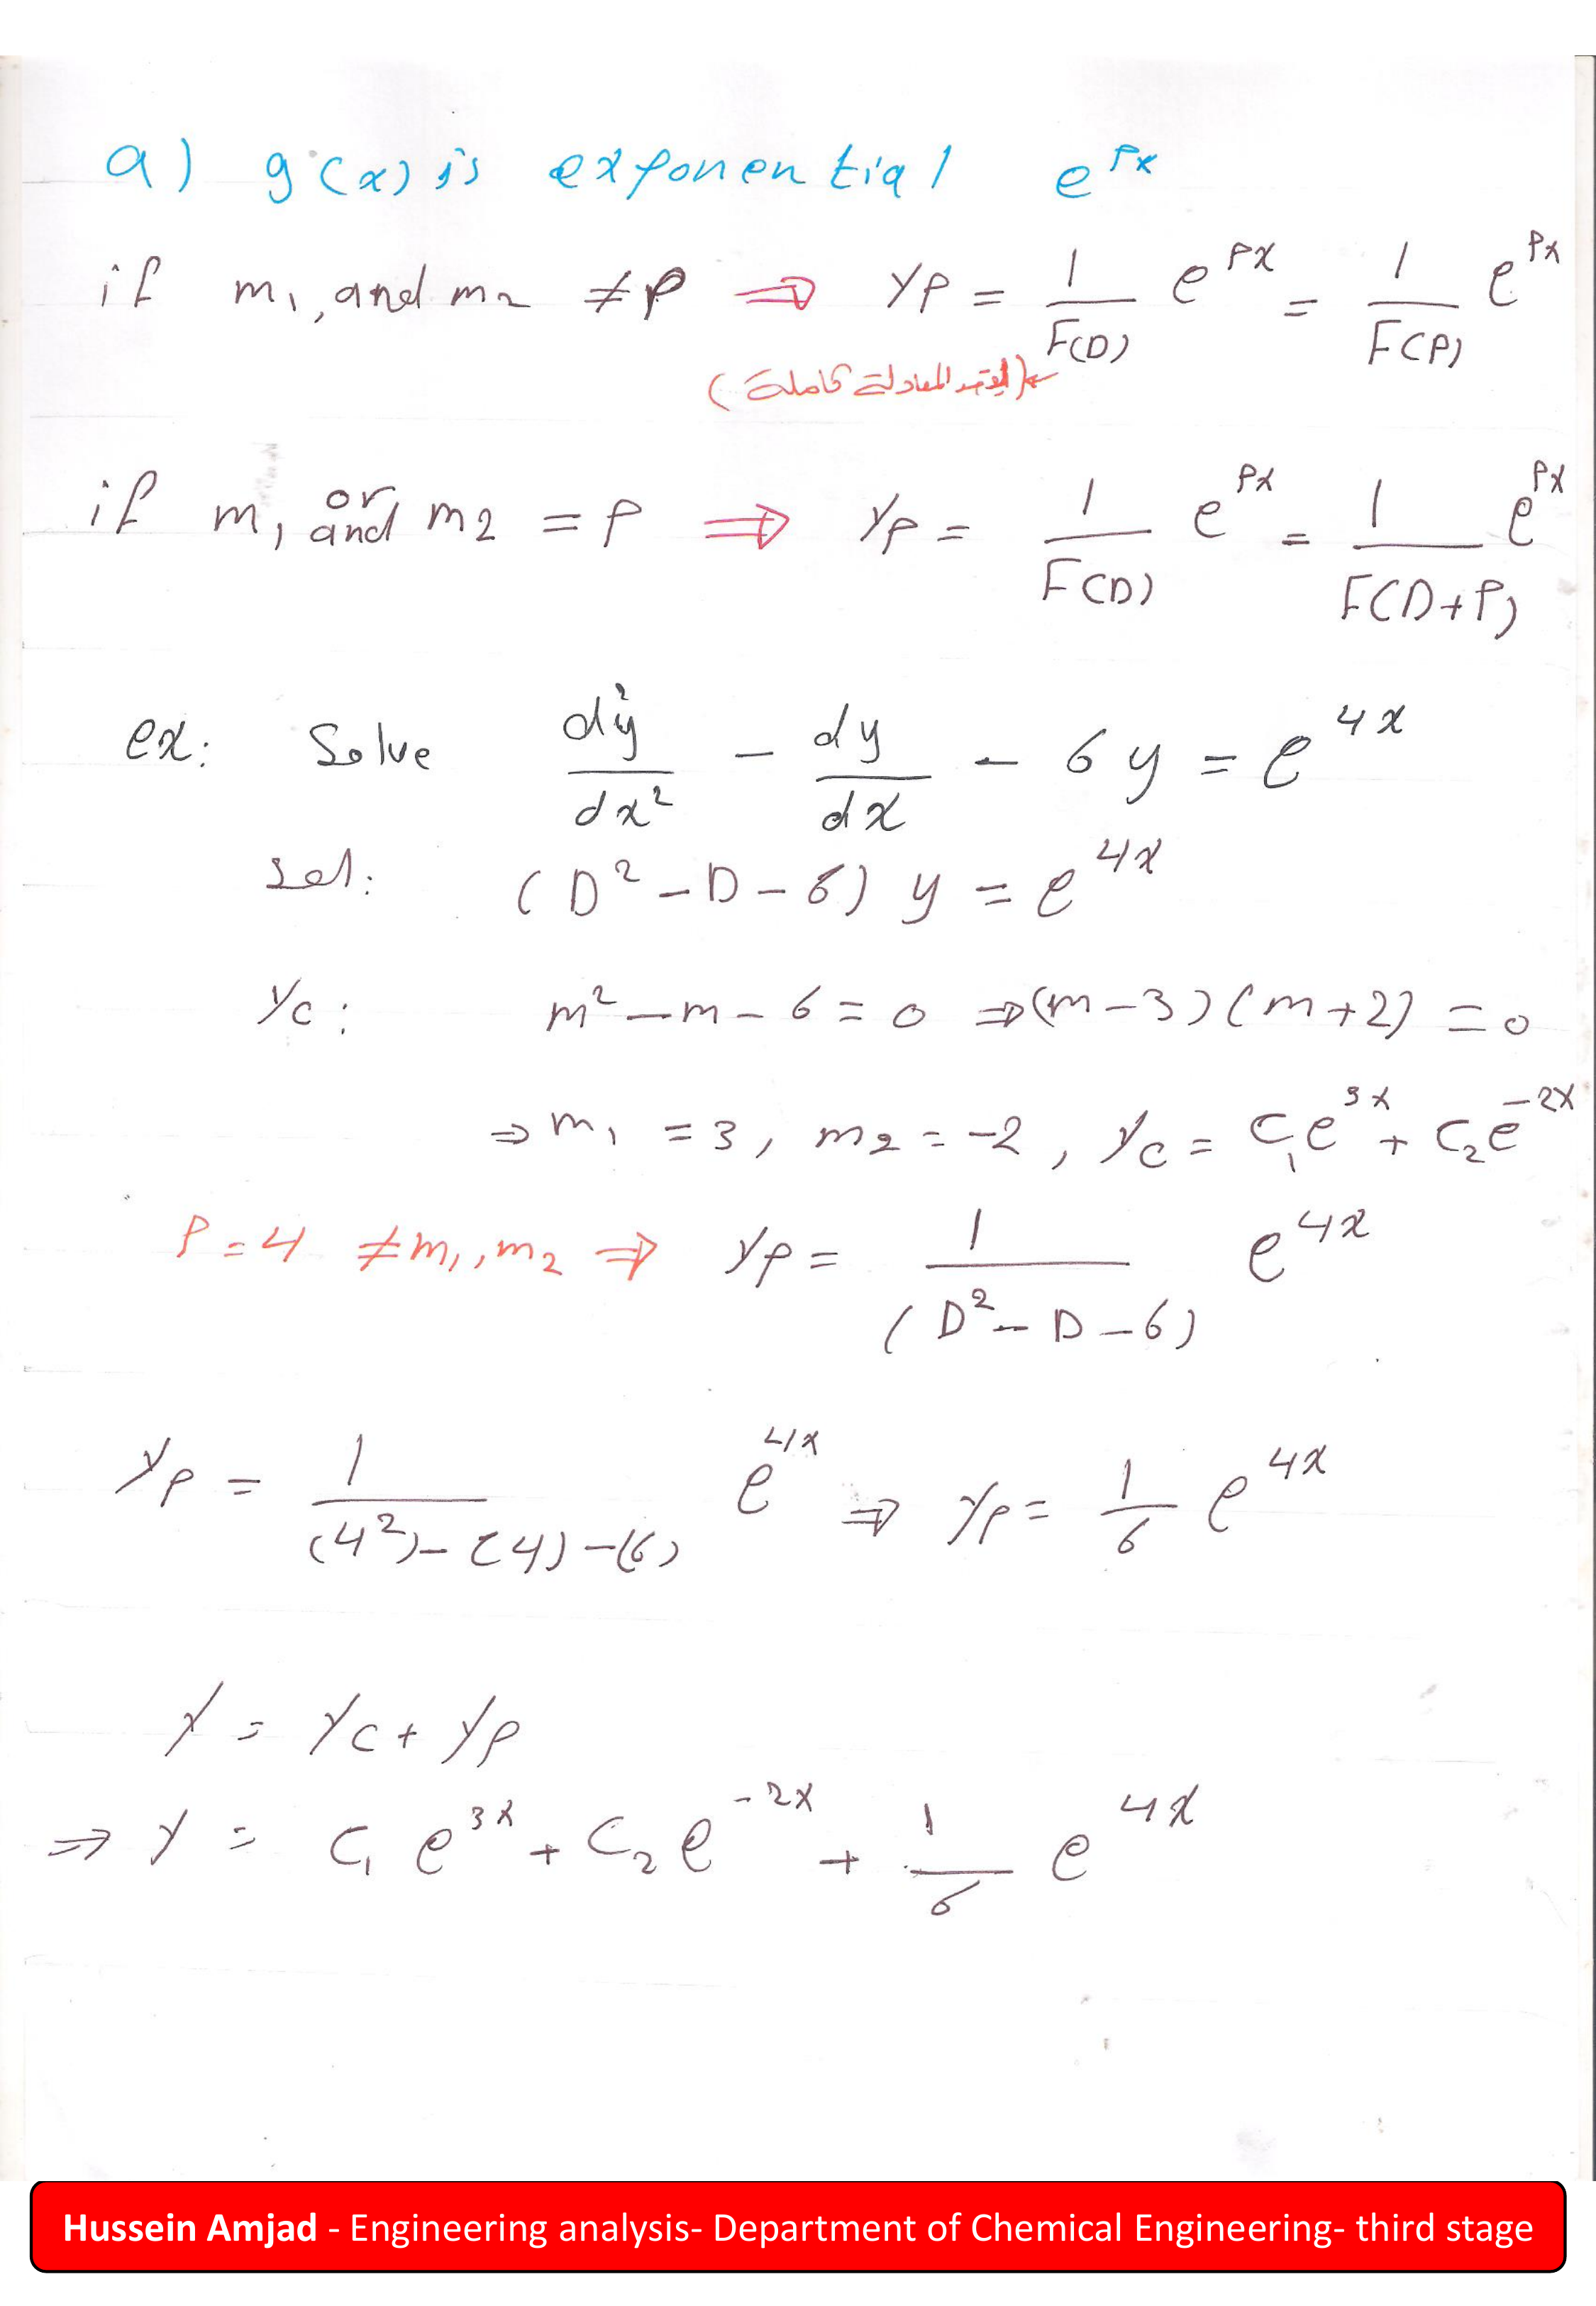 a) g(x) is exponential e^{px}
if m₁, and m₂ ≠ p ⇒ yp = 1/F(D) e^{px} = 1/F(P) e^{px}
المعادلة كاملة)
if m₁ or and m₂ = p ⇒ yp = 1/F(D) e^{px} = 1/F(D+P) e^{px}
ex: Solve d²y/dx² - dy/dx - 6y = e^{4x}
sol: (D² - D - 6) y = e^{4x}
yc: m² - m - 6 = 0 ⇒ (m-3)(m+2) = 0
⇒ m₁ = 3, m₂ = -2, yc = C₁e^{3x} + C₂e^{-2x}
P = 4 ≠ m₁, m₂ ⇒ yp = 1/(D² - D - 6) e^{4x}
yp = 1/((4²) - (4) - (6)) e^{4x} ⇒ yp = 1/6 e^{4x}
y = yc + yp
⇒ y = C₁ e^{3x} + C₂ e^{-2x} + 1/6 e^{4x}
Hussein Amjad - Engineering analysis- Department of Chemical Engineering- third stage